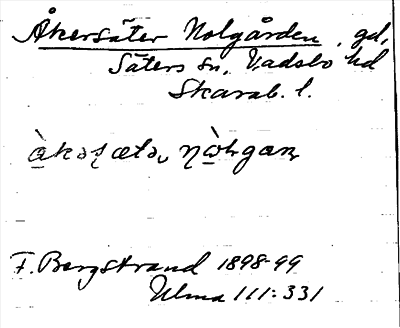 Åkersäter Nolgården, gd,
Säters sn, Vadsbo hd
Skarab. l.
F. Bergstrand 1898-99
Ulma 111:331